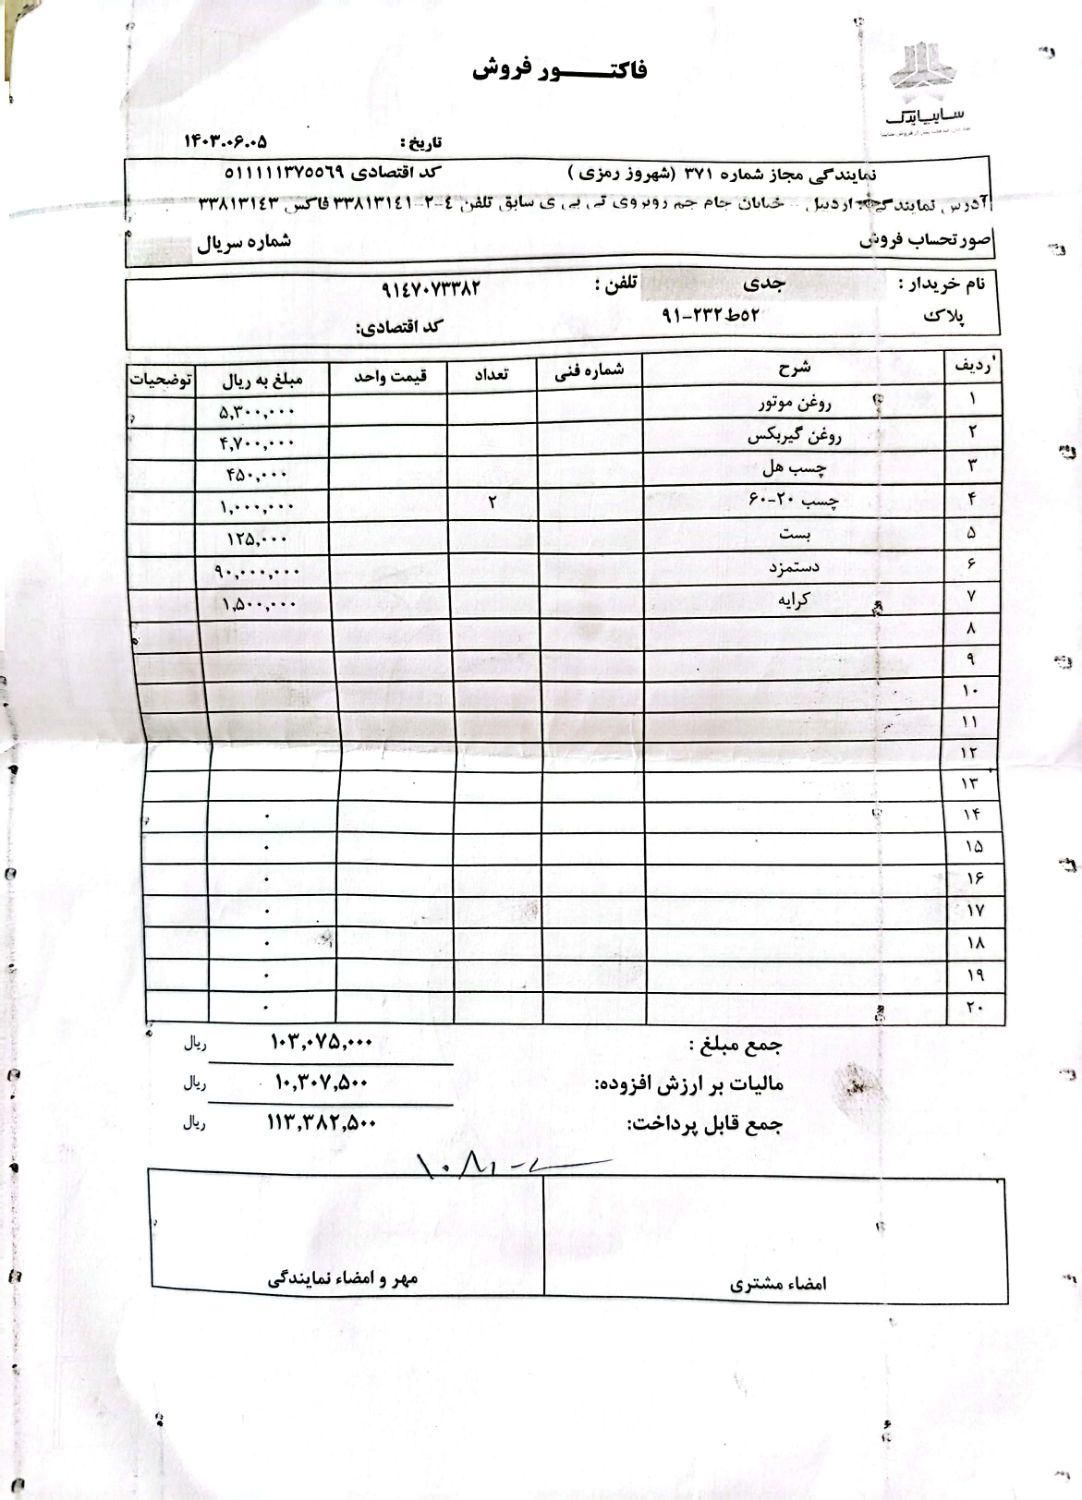 فاکتـــــور فروش
سایپایدک
تاریخ : ۱۴۰۳.۰۶.۰۵
نمایندگی مجاز شماره ۳۷۱ (شهروز رمزی ) کد اقتصادی ۵۱۱۱۱۱۳۷۵۵۶۹
آدرس نمایندگی: اردبیل - خیابان جام جم روبروی تی بی ی سابق تلفن ٤-٢-٣٣٨١٣١٤١ فاکس ٣٣٨١٣١٤٣
صورتحساب فروش شماره سریال
نام خریدار : جدی تلفن : ٩١٤٧٠٧٣٣٨٢
پلاک ۵۲ط۲۳۲-۹۱ کد اقتصادی:
ردیف شرح شماره فنی تعداد قیمت واحد مبلغ به ریال توضحیات
۱ روغن موتور ۵,۳۰۰,۰۰۰
۲ روغن گیربکس ۴,۷۰۰,۰۰۰
۳ چسب هل ۴۵۰,۰۰۰
۴ چسب ۲۰-۶۰ ۲ ۱,۰۰۰,۰۰۰
۵ بست ۱۲۵,۰۰۰
۶ دستمزد ۹۰,۰۰۰,۰۰۰
۷ کرایه ۱,۵۰۰,۰۰۰
۸
۹
۱۰
۱۱
۱۲
۱۳
۱۴ ۰
۱۵ ۰
۱۶ ۰
۱۷ ۰
۱۸ ۰
۱۹ ۰
۲۰ ۰
جمع مبلغ : ۱۰۳,۰۷۵,۰۰۰ ریال
مالیات بر ارزش افزوده: ۱۰,۳۰۷,۵۰۰ ریال
جمع قابل پرداخت: ۱۱۳,۳۸۲,۵۰۰ ریال
امضاء مشتری مهر و امضاء نمایندگی